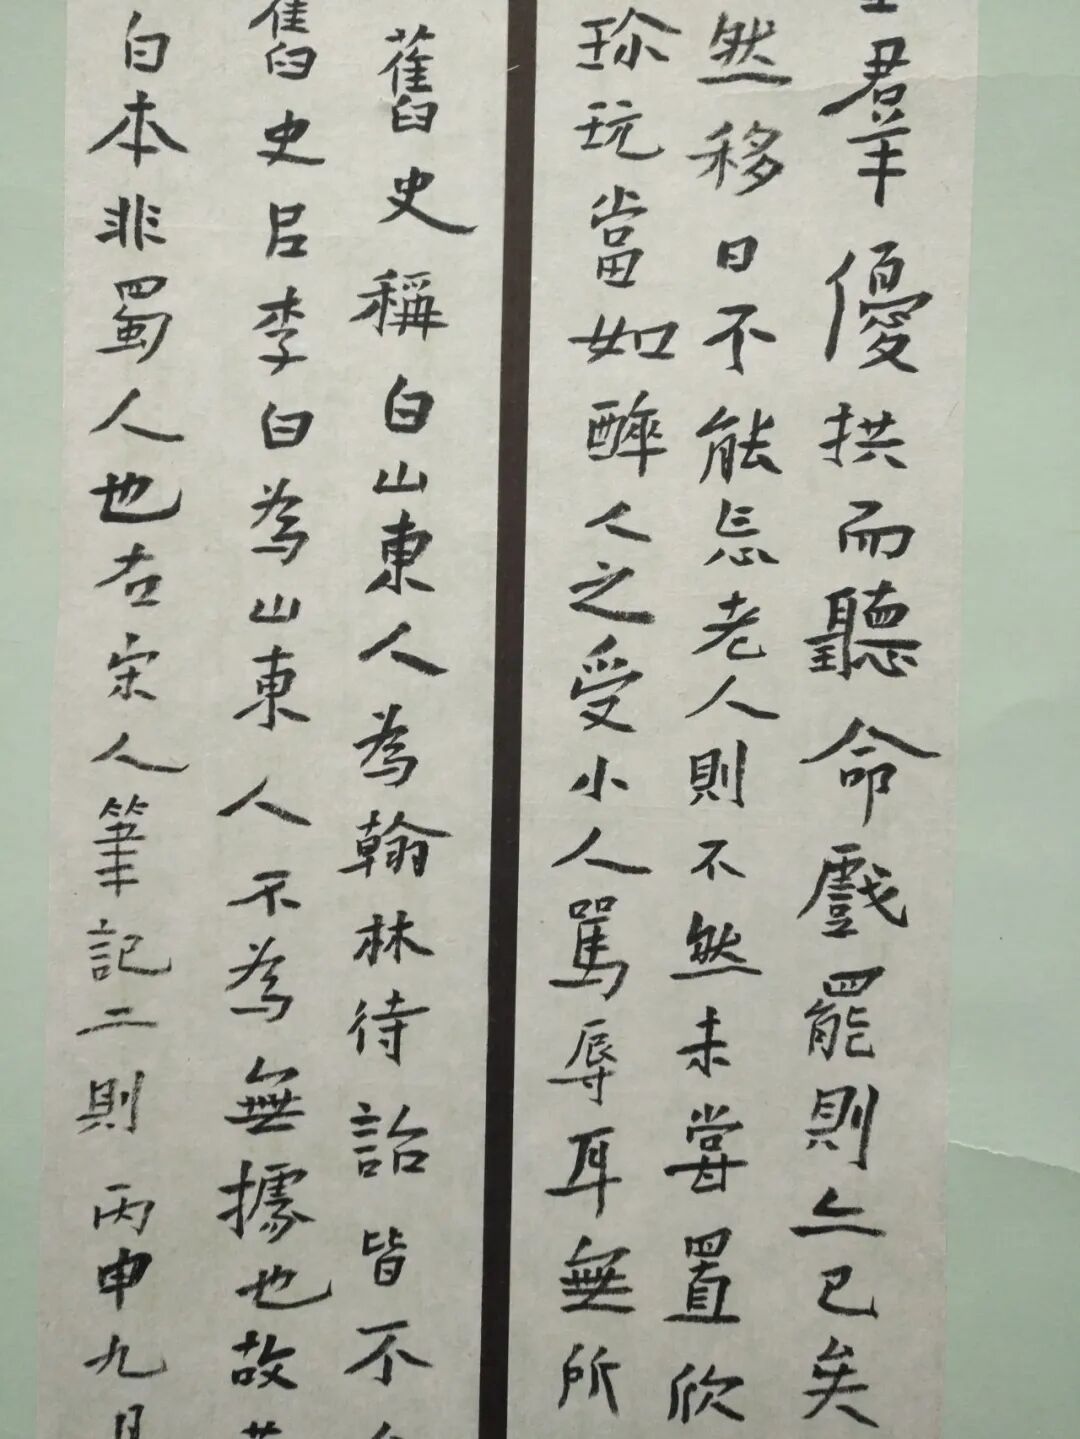 羣優拱而聽命戲罷則亡已矣
然移日不能忘老人則不然未甞置欣
珎玩當如醉人之受小人罵辱耳無所
舊史稱白山東人為翰林待詔皆不
舊史呂李白為山東人不為無據也故
白本非蜀人也右宋人筆記二則丙申九月